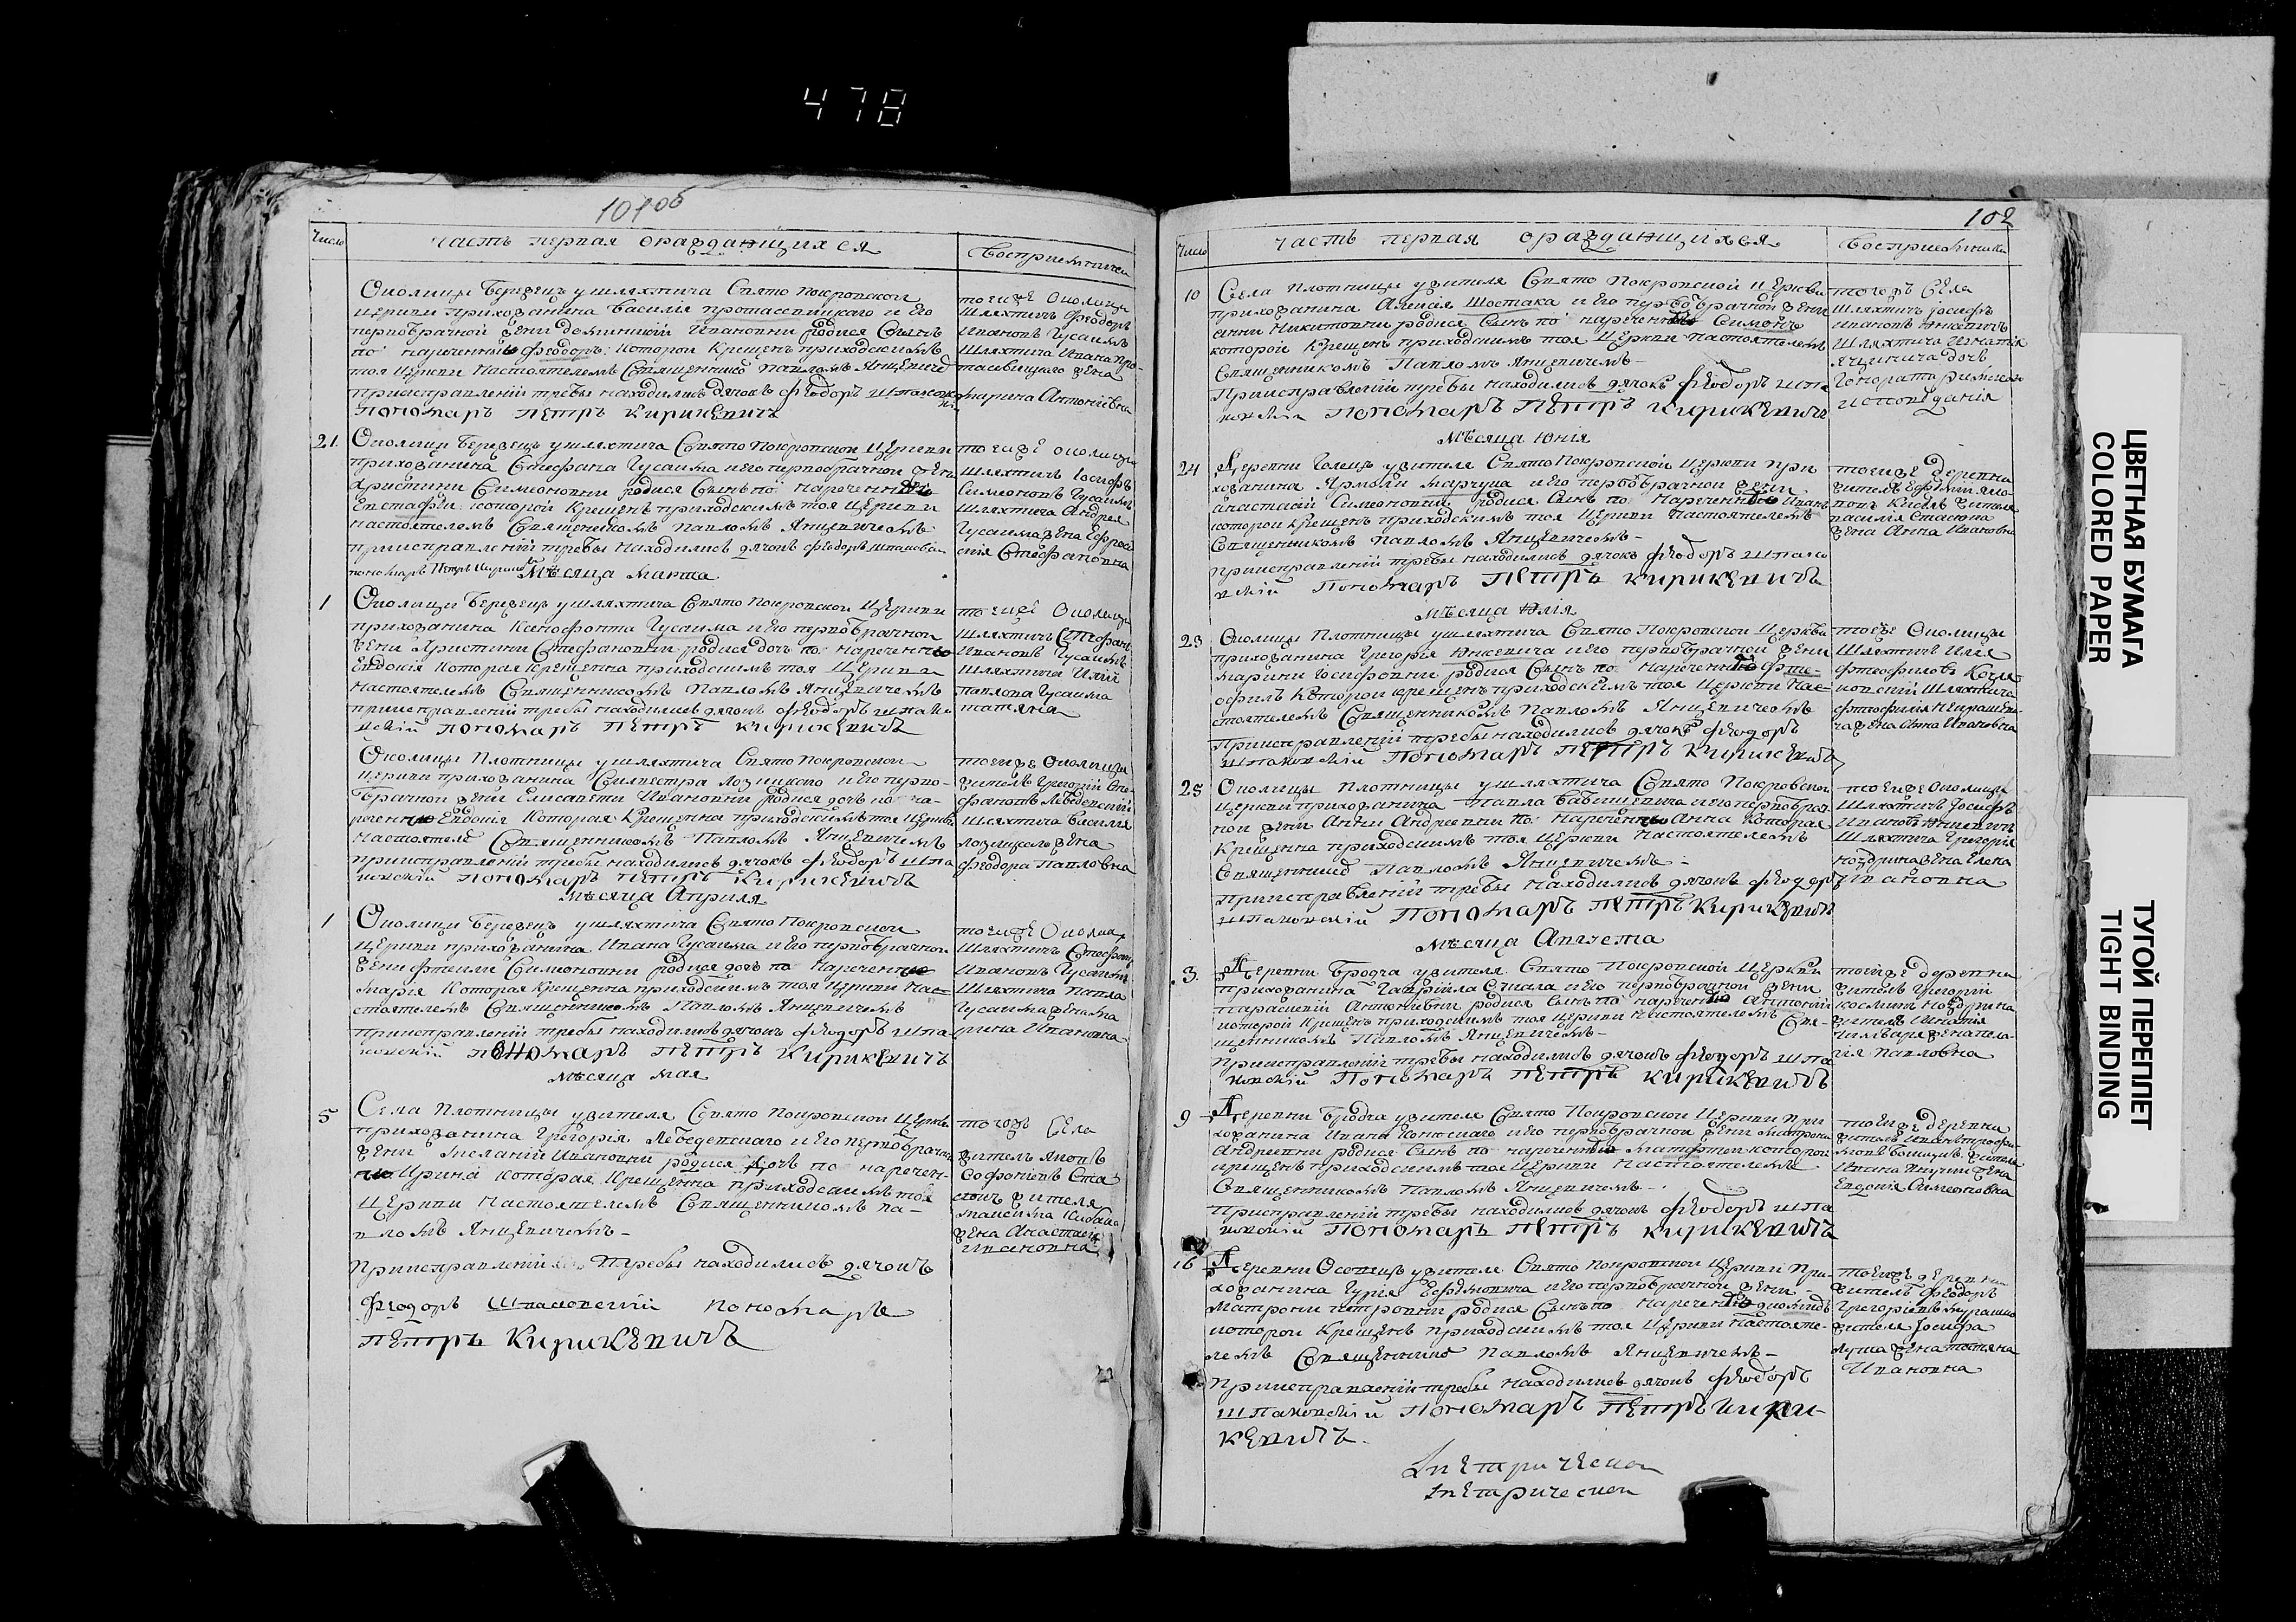 478
101об
Число
часть первая ораждающихся
Восприемники
Околицы Бережец у шляхтича Свято Покровской
церкви прихожанина Василия Протасевицкаго и его
первобрачной жены Ивановны родися сынъ
по нареченный Феодоръ: которой крещенъ приходскимъ
тоя церкви настоятелемъ священнико Павломъ Янцевиче
при исправлении требы находились дячокъ Феодоръ Шпаков
Пономарь Петръ Кирикевичъ
тоейже околицы
шляхтичъ Феодоръ
Ивановъ Гусаимъ
шляхтича Ивана Про-
тасевицкаго жена
Марина Антониевна
21
Околицы Бережец у шляхтича Свято Покровской церкви
прихожанина Стефана Гусаима и его первобрачной жены
Христины Симоновны родися сынъ по нареченно
Евстафи: которой крещенъ приходскимъ тоя церкви
настоятелемъ священникомъ Павломъ Янцевичемъ
при исправлении требы находились дячокъ Феодоръ Шпаков
пономарь Петръ Кирикев
тоейже околицы
шляхтичъ Иосифъ
Симоновъ Гусаимъ
шляхтича Андрея
Гусаима жена Ефро
Стефановна
Мѣсяца Марта
1
Околицы Бережец у шляхтича Свято Покровской церкви
прихожанина Ксенофонта Гусаима и его первобрачной
жены Христины Стефановны родися дочь по нареченно
Евдокия которая крещенна приходскимъ тоя церкви
настоятелемъ священникомъ Павломъ Янцевичемъ
при исправлении требы находились дячокъ Феодоръ Шпако
вский Пономарь Петръ Кирикевичъ
тоейже околицы
шляхтичъ Стефанъ
Ивановъ Гусаимъ
шляхтича Илии
Павлова Гусаима
Татяна
Околицы Плотницы у шляхтича Свято Покровской
церкви прихожанина Силвестра Лозицкаго и его перво-
брачной жены Елисаветы Ивановны родися дочь по на-
реченно Евдокия которая крещенна приходскимъ тоя церкви
настоятеле священникомъ Павломъ Янцевичемъ
при исправлении требы находились дячокъ Феодоръ Шпа
ковский Пономарь Петръ Кирикевичъ
тоейже околицы
житель Григорий Сте-
фановъ Лебедевский
шляхтича Василия
жена
Феодора Павловна
Мѣсяца Априля
1
Околицы Бережец у шляхтича Свято Покровской
церкви прихожанина Ивана Гусаима и его первобрачной
жены Симоновны родися дочь по нареченно
Мария которая крещенна приходскимъ тоя церкви нас-
стоятелемъ священникомъ Павломъ Янцевичемъ
при исправлении требы находились дячокъ Феодоръ Шпа
ковский Пономарь Петръ Кирикевичъ
тоейже околиц
шляхтичъ Стефанъ
Ивановъ Гусаимъ
шляхтича Павла
Гусаима жена Ма
рина Ивановна
Мѣсяца Мая
5
Села Плотницы у жителя Свято Покровской церкви
прихожанина Григория Лебедевскаго и его первобрачно
жены Мелании Ивановны родися дочь по наречен-
но Ирина которая крещенна приходскимъ тоя
церкви настоятелемъ священникомъ Па-
вломъ Янцевичемъ-
При исправлении требы находились дячокъ
Феодоръ Шпаковский Пономарь
Петръ Кирикевичъ
тогожъ Села
житель Яковъ
Софониевъ
жителя
Максима
жена Анастасия
Ивановна
102
Число
часть первая ораждающихся
Восприемники
10
Села Плотницы у жителя Свято Покровской церкви
прихожанина Алексия Шостака и его первобрачной жены
Никитовны родися сынъ по нареченно Симонъ
которой крещенъ приходскимъ тоя церкви настоятелемъ
священникомъ Павломъ Янцевичемъ-
При исправлении требы находились дячокъ Феодоръ Шпа
ковский Пономарь Петръ Кирикевичъ
тогожъ Села
шляхтичъ Иосифъ
Ивановъ Юнкевичъ
шляхтича Игнатия
дочь
Гонората римскаго
исповедания
Мѣсяца Юния
24
Деревни Голецъ у жителя Свято Покровской церкви при
хожанина и его первобрачной жены
Анастасии Симоновны родися сынъ по нареченно Иванъ
которой крещенъ приходскимъ тоя церкви настоятелемъ
священникомъ Павломъ Янцевичемъ-
при исправлении требы находились дячокъ Феодоръ Шпако
вский Пономарь Петръ Кирикевичъ
тоейже деревни
житель Ефимий
жителя
Василия
жена Анна Ивановна
Мѣсяца Юлия
23
Околицы Плотницы у шляхтича Свято Покровской церкви
прихожанина Григория Юнкевича и его первобрачной жены
Марины Иосифовны родися сынъ по нареченно Фте-
офилъ которой крещенъ приходскимъ тоя церкви нас-
стоятелемъ священникомъ Павломъ Янцевичемъ
При исправлении требы находились дячокъ Феодоръ
Шпаковский Пономарь Петръ Кирикевичъ
тоейже околицы
шляхтичъ Илия
Фтеофиловъ
шляхтича
Фтеофилия
жена Анна Ивановна
25
Околицы Плотницы у шляхтича Свято Покровской
церкви прихожанина Павла Бабицевича и его первобрач-
ной жены Анны Андреевны по нареченно Анна которая
крещенна приходскимъ тоя церкви настоятелемъ
священнико Павломъ Янцевичемъ-
При исправлении требы находились дячокъ Феодоръ
Шпаковский Пономарь Петръ Кирикевичъ
тоейже околицы
шляхтичъ Иосифъ
Ивановъ Юнкевичъ
шляхтича Григория
Ноздрина жена Елена
Ивановна
Мѣсяца Августа
3
Деревни Бродча у жителя Свято Покровской церкви
прихожанина Гавриила и его первобрачной жены
Параскевии Антониевны родися сынъ по нареченно Антоний
которой крещенъ приходскимъ тоя церкви настоятелемъ свя-
щенникомъ Павломъ Янцевичемъ-
При исправлении требы находились дячокъ Феодоръ Шпа
ковский Пономарь Петръ Кирикевичъ
тоейже деревни
житель Григорий
Ноздрина
житель Игнатия
жена Пела-
гия Павловна
9
Деревни Бродча у жителя Свято Покровской церкви при
хожанина Ивана и его первобрачной жены Матроны
Андреевны родися сынъ по нареченно Матфей которой
крещенъ приходскимъ тоя церкви настоятелемъ
священникомъ Павломъ Янцевичемъ-
При исправлении требы находились дячокъ Феодоръ Шпа
ковский Пономарь Петръ Кирикевичъ
тоейже деревни
житель Иванъ Трофи-
мовъ жителя
Ивана жена
Евдокия Симеоновна
16
Деревни Осовецъ у жителя Свято Покровской церкви при-
хожанина Гурия Ефимовича и его первобрачной жены
Матроны Петровны родися сынъ по нареченно Диомидъ
которой крещенъ приходскимъ тоя церкви настояте-
лемъ священнико Павломъ Янцевичемъ-
При исправлении требы находились дячокъ Феодоръ
Шпаковский Пономарь Петръ Кири-
кевичъ.
тоейжъ деревни
житель Феодоръ
Григориевъ
жителя Иосифа
жена Татяна
Ивановна
ЦВЕТНАЯ БУМАГА
COLORED PAPER
ТУГОЙ ПЕРЕПЛЕТ
TIGHT BINDING